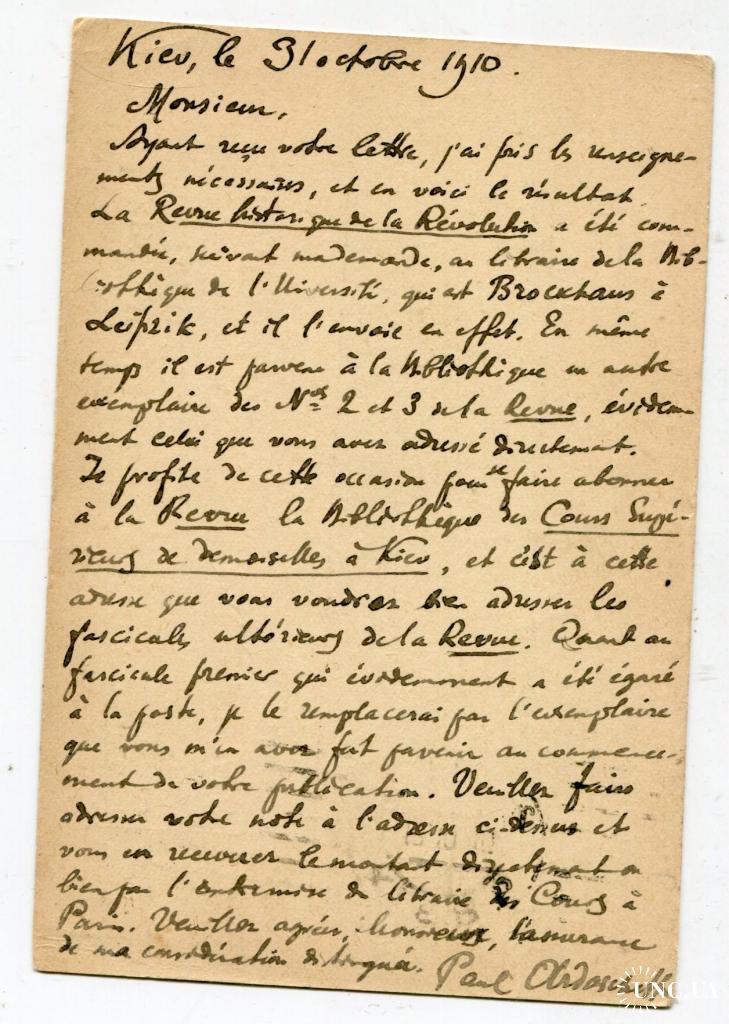 Kiev, le 31 octobre 1910.
Monsieur,
Ayant reçu votre lettre, j'ai pris les renseigne-
ments nécessaires, et en voici le résultat.
La Revue historique de la Révolution a été com-
mandée, suivant ma demande, au libraire de la Bib-
liothèque de l'Université, qui est Brockhaus à
Leipzik, et il l'envoie en effet. En même
temps il est parvenu à la Bibliothèque un autre
exemplaire des Nos 2 et 3 de la Revue, évidem-
ment celui que vous avez adressé directement.
Je profite de cette occasion pour se faire abonner
à la Revue la Bibliothèque des Cours Supé-
rieurs de demoiselles à Kiev, et c'est à cette
adresse que vous voudrez bien adresser les
fascicules ultérieurs de la Revue. Quant au
fascicule premier qui évidemment a été égaré
à la poste, je le remplacerai par l'exemplaire
que vous m'en avez fait parvenir au commence-
ment de votre publication. Veuillez faire
adresser votre note à l'adresse ci-dessus et
vous en recevrez le montant directement ou
bien par l'entremise du libraire des Cours à
Paris. Veuillez agréer, Monsieur, l'assurance
de ma considération distinguée. Paul
UNC.UA